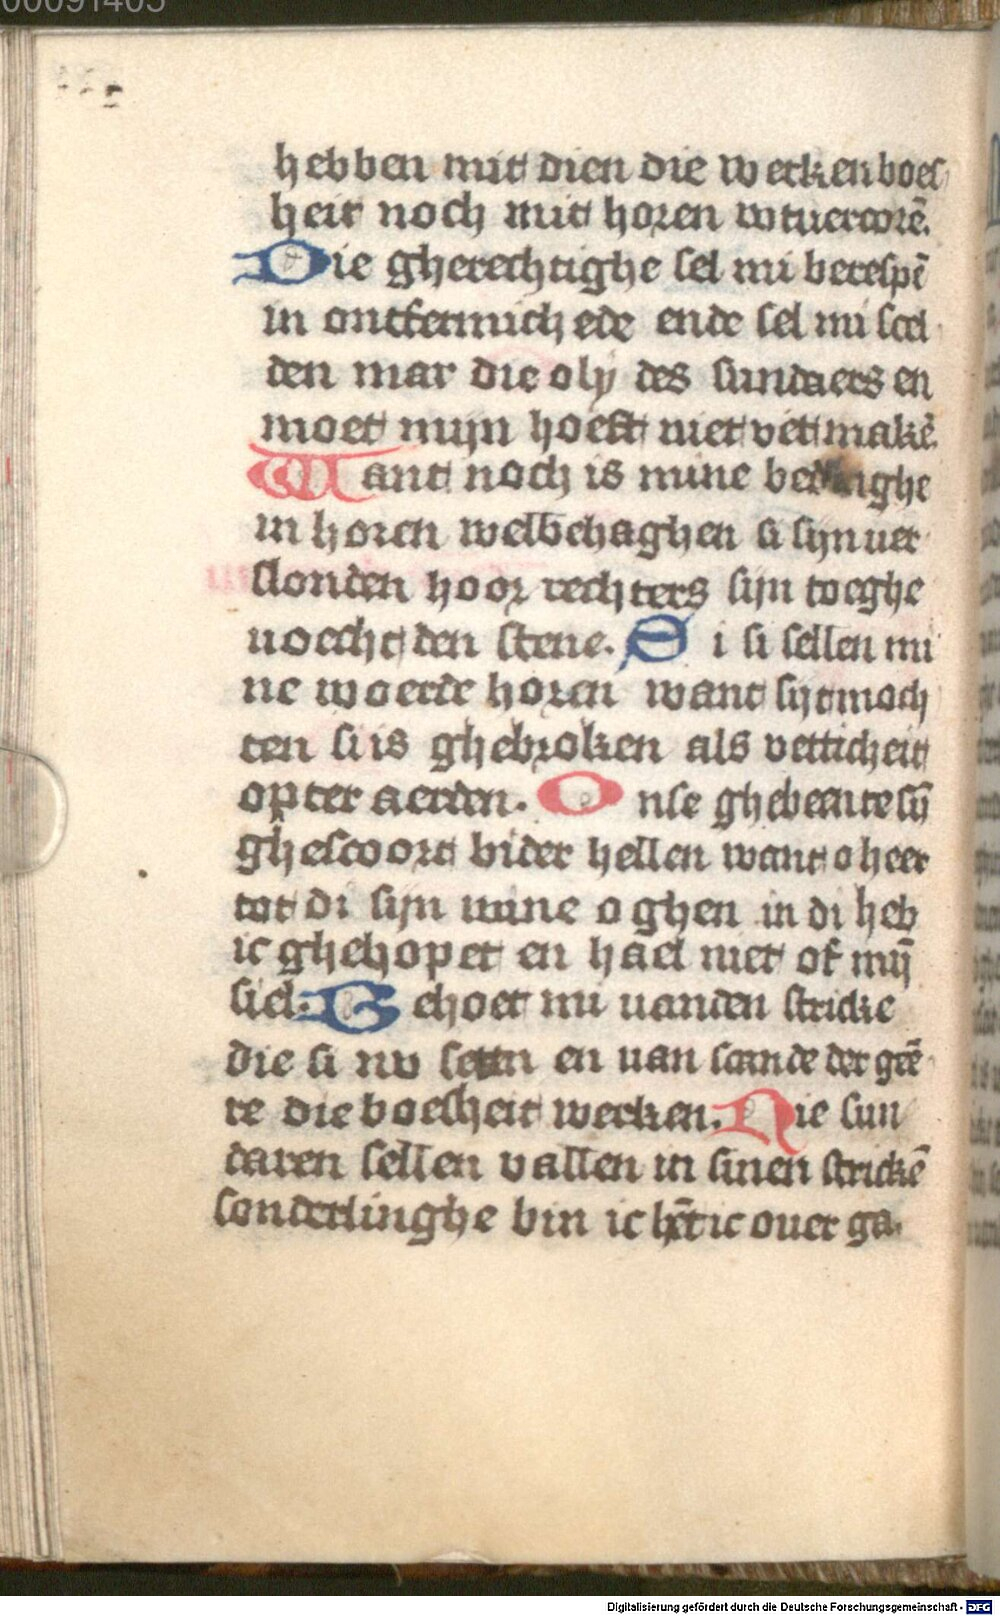 00091405
hebben mit dien die werken boes
heit noch mit horen wtuercorē.
Die gherechtighe sel mi berespē
in ontfermich ede ende sel mi scel
den mar die olij des sundaers en
moet mijn hoeft niet vet makē.
Want noch is mine bedinghe
in horen welbehaghen si sijn uer
slonden hoor rechters sijn toeghe
uoecht den stene. Si si sellen mi
ne woerde horen want sijt moch
ten si is ghebroken als vetticheit
opter aerden. Onse ghebeente sij̄
ghescoort bider hellen want o heer
tot di sijn mine oghen in di heb
ic ghehopet en hael niet of mij̄
siel. Behoet mi uanden stricke
die si mi setten en uan scande der gēe
re die boesheit werken. Die sun
daren sellen vallen in sinen strickē
sonderlinghe bin ic hēt ic ouer ga.
Digitalisierung gefördert durch die Deutsche Forschungsgemeinschaft - DFG